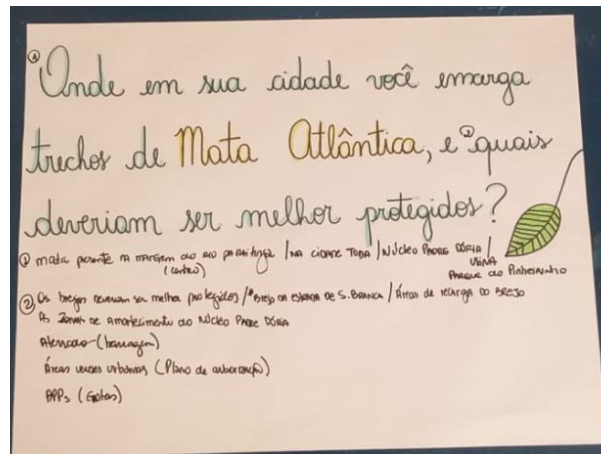 ① Onde em sua cidade você enxerga
trechos de Mata Atlântica, e ② quais
deveriam ser melhor protegidos?
① mata presente na margem do rio paraitinga / na cidade toda / Núcleo Padre Dória /
(centro)
Usina
Parque do Pinheirinho
② Os brejos deveriam ser melhor protegidos / Brejo da estrada de S. Branca / Áreas de recarga do brejo
As zonas de amortecimento do Núcleo Padre Dória
Atenção (barragem)
Áreas verdes urbanas (Plano de arborização)
APPs